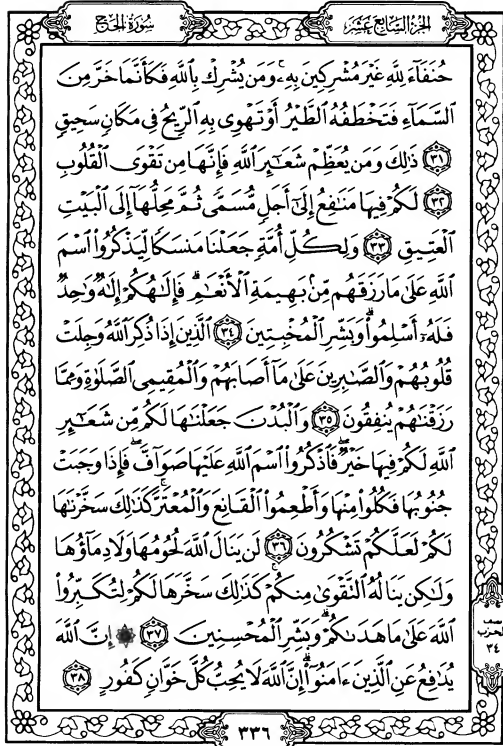 سُورَةُ الحَجّ
الجُزْءُ السَّابِعَ عَشَرَ
حُنَفَآءَ لِلَّهِ غَيْرَ مُشْرِكِينَ بِهِۦۚ وَمَن يُشْرِكْ بِٱللَّهِ فَكَأَنَّمَا خَرَّ مِنَ
ٱلسَّمَآءِ فَتَخْطَفُهُ ٱلطَّيْرُ أَوْ تَهْوِى بِهِ ٱلرِّيحُ فِى مَكَانٍ سَحِيقٍ
٣١ ذَٰلِكَ وَمَن يُعَظِّمْ شَعَٰٓئِرَ ٱللَّهِ فَإِنَّهَا مِن تَقْوَى ٱلْقُلُوبِ
٣٢ لَكُمْ فِيهَا مَنَٰفِعُ إِلَىٰٓ أَجَلٍ مُّسَمًّى ثُمَّ مَحِلُّهَآ إِلَى ٱلْبَيْتِ
ٱلْعَتِيقِ ٣٣ وَلِكُلِّ أُمَّةٍ جَعَلْنَا مَنسَكًا لِّيَذْكُرُوا۟ ٱسْمَ
ٱللَّهِ عَلَىٰ مَا رَزَقَهُم مِّنۢ بَهِيمَةِ ٱلْأَنْعَٰمِۗ فَإِلَٰهُكُمْ إِلَٰهٌ وَٰحِدٌ
فَلَهُۥٓ أَسْلِمُوا۟ۗ وَبَشِّرِ ٱلْمُخْبِتِينَ ٣٤ ٱلَّذِينَ إِذَا ذُكِرَ ٱللَّهُ وَجِلَتْ
قُلُوبُهُمْ وَٱلصَّٰبِرِينَ عَلَىٰ مَآ أَصَابَهُمْ وَٱلْمُقِيمِى ٱلصَّلَوٰةِ وَمِمَّا
رَزَقْنَٰهُمْ يُنفِقُونَ ٣٥ وَٱلْبُدْنَ جَعَلْنَٰهَا لَكُم مِّن شَعَٰٓئِرِ
ٱللَّهِ لَكُمْ فِيهَا خَيْرٌۖ فَٱذْكُرُوا۟ ٱسْمَ ٱللَّهِ عَلَيْهَا صَوَآفَّۖ فَإِذَا وَجَبَتْ
جُنُوبُهَا فَكُلُوا۟ مِنْهَا وَأَطْعِمُوا۟ ٱلْقَانِعَ وَٱلْمُعْتَرَّۚ كَذَٰلِكَ سَخَّرْنَٰهَا
لَكُمْ لَعَلَّكُمْ تَشْكُرُونَ ٣٦ لَن يَنَالَ ٱللَّهَ لُحُومُهَا وَلَا دِمَآؤُهَا
وَلَٰكِن يَنَالُهُ ٱلتَّقْوَىٰ مِنكُمْۚ كَذَٰلِكَ سَخَّرَهَا لَكُمْ لِتُكَبِّرُوا۟
ٱللَّهَ عَلَىٰ مَا هَدَىٰكُمْۗ وَبَشِّرِ ٱلْمُحْسِنِينَ ٣٧ ۞ إِنَّ ٱللَّهَ
يُدَٰفِعُ عَنِ ٱلَّذِينَ ءَامَنُوٓا۟ۗ إِنَّ ٱللَّهَ لَا يُحِبُّ كُلَّ خَوَّانٍ كَفُورٍ ٣٨
نصف
الحزب
٣٤
٣٣٦